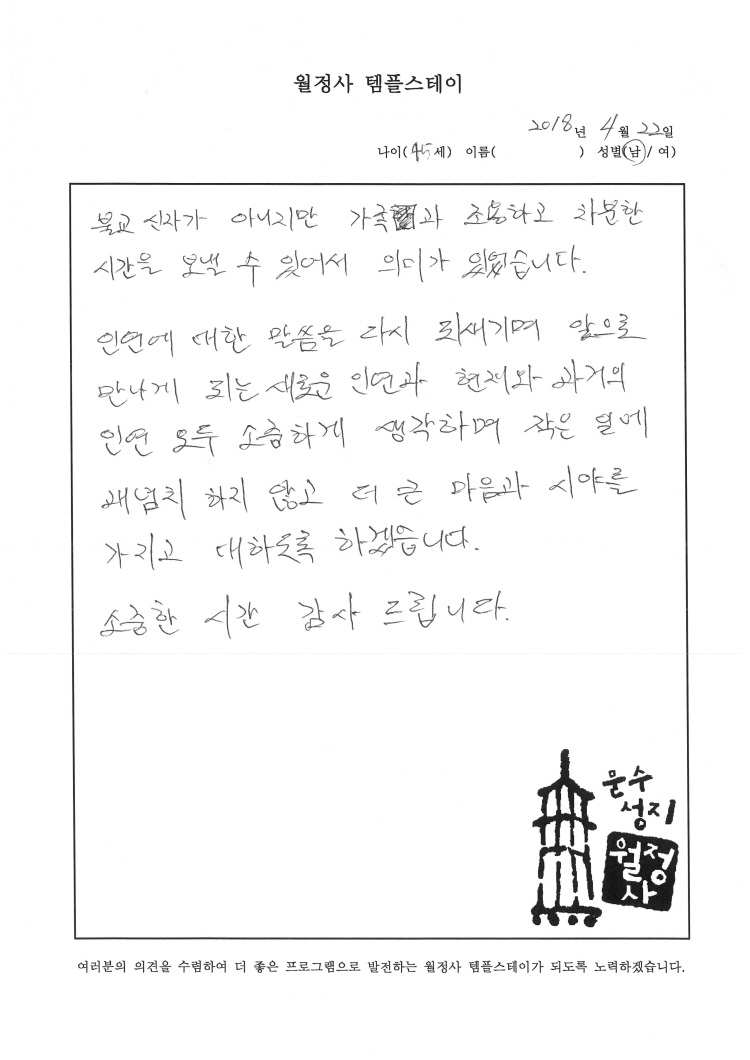 월정사 템플스테이
2018년 4월 22일
나이(45세) 이름( ) 성별(남/여)
불교 신자가 아니지만 가족과 조용하고 차분한
시간을 보낼 수 있어서 의미가 있었습니다.
인연에 대한 말씀을 다시 되새기며 앞으로
만나게 되는 새로운 인연과 현재와 과거의
인연 모두 소중하게 생각하며 작은 일에
괘념치 하지 않고 더 큰 마음과 시야를
가지고 대하도록 하겠습니다.
소중한 시간 감사 드립니다.
문수
성지
월정
사
여러분의 의견을 수렴하여 더 좋은 프로그램으로 발전하는 월정사 템플스테이가 되도록 노력하겠습니다.